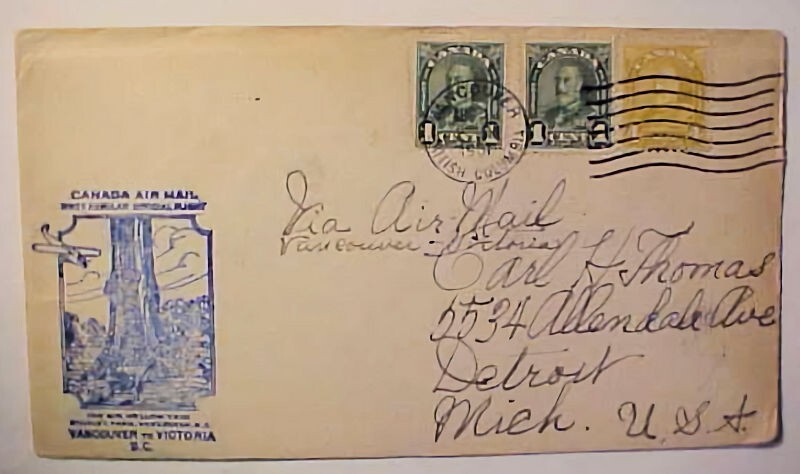 CANADA
1 CENT 1
CANADA
1 CENT 1
CANADA
VANCOUVER
BRITISH COLUMBIA
CANADA AIR MAIL
SPECIAL FLIGHT
Via Air Mail
Vancouver - Victoria
Carl H Thomas
5534 Allendale Ave
Detroit
Mich. U.S.A.
HOLLOW TREE
VANCOUVER TO VICTORIA
B.C.